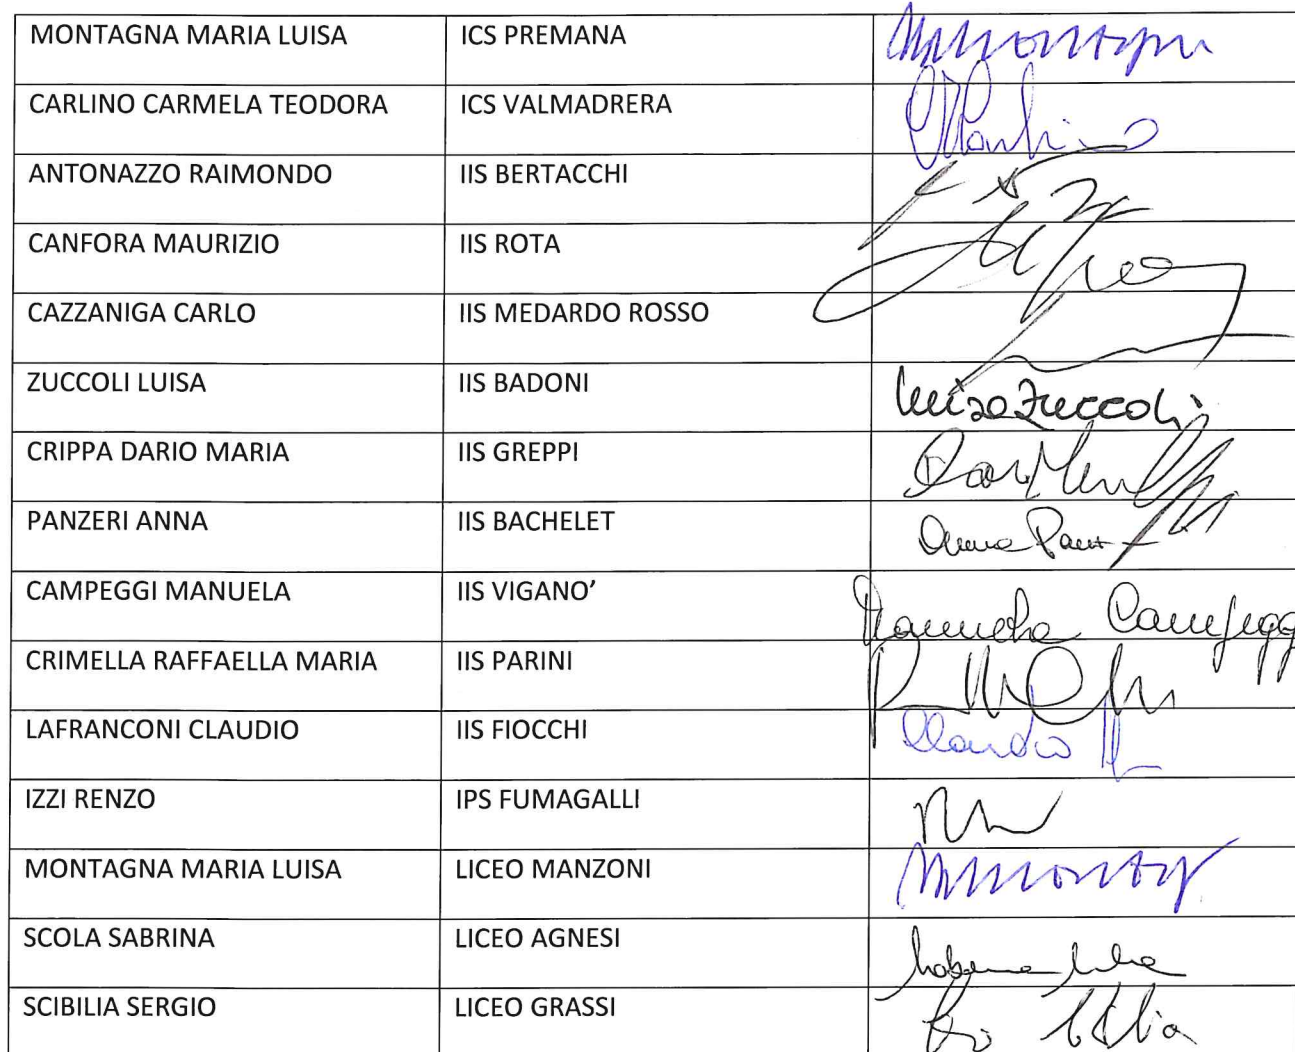 MONTAGNA MARIA LUISA ICS PREMANA
CARLINO CARMELA TEODORA ICS VALMADRERA
ANTONAZZO RAIMONDO IIS BERTACCHI
CANFORA MAURIZIO IIS ROTA
CAZZANIGA CARLO IIS MEDARDO ROSSO
ZUCCOLI LUISA IIS BADONI Luisa Zuccoli
CRIPPA DARIO MARIA IIS GREPPI
PANZERI ANNA IIS BACHELET Anna
CAMPEGGI MANUELA IIS VIGANO’ Manuela Campeggi
CRIMELLA RAFFAELLA MARIA IIS PARINI
LAFRANCONI CLAUDIO IIS FIOCCHI Claudio
IZZI RENZO IPS FUMAGALLI
MONTAGNA MARIA LUISA LICEO MANZONI
SCOLA SABRINA LICEO AGNESI
SCIBILIA SERGIO LICEO GRASSI